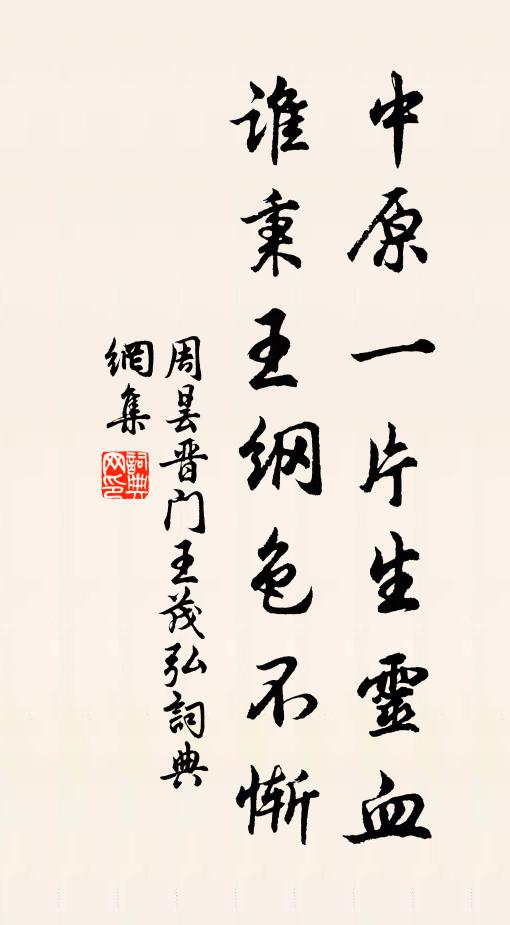 中原一片生靈血
谁秉王纲色不惭
周昙晋门王茂弘詞典
網集
詞典網印